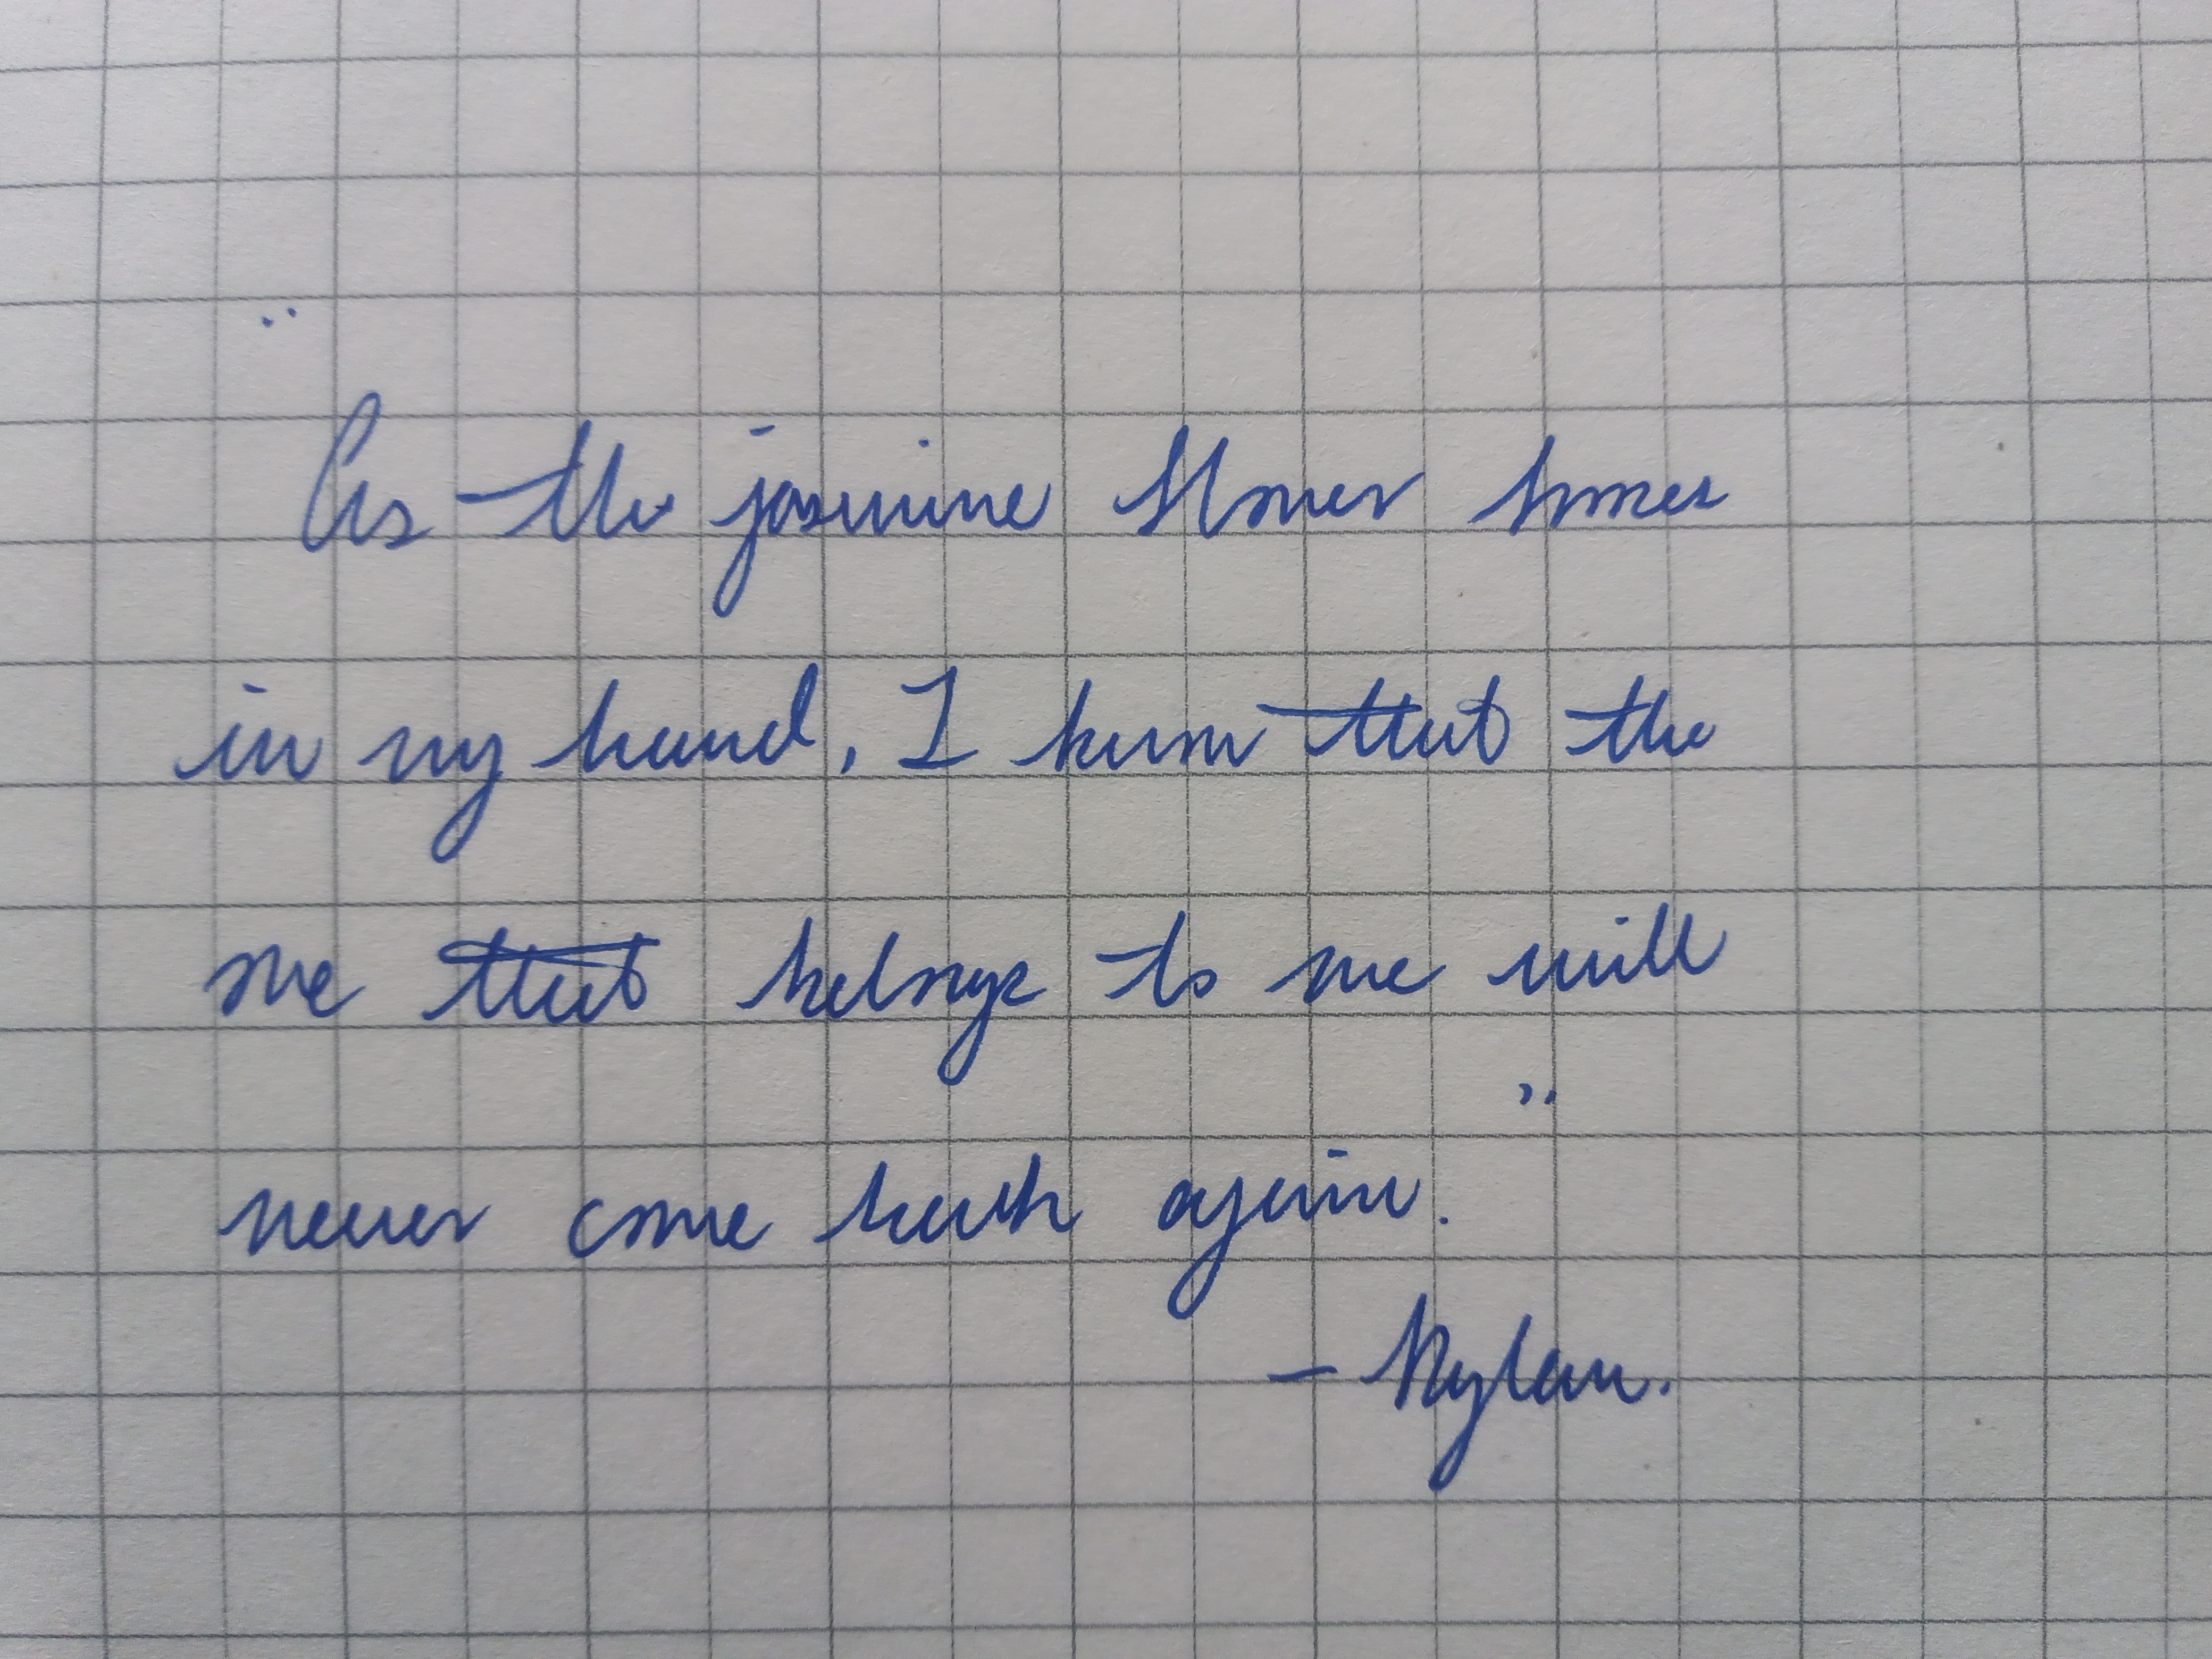 "As the jasmine flower blooms
in my hand, I know that the
one that belongs to me will
never come back again."
- Rylan.